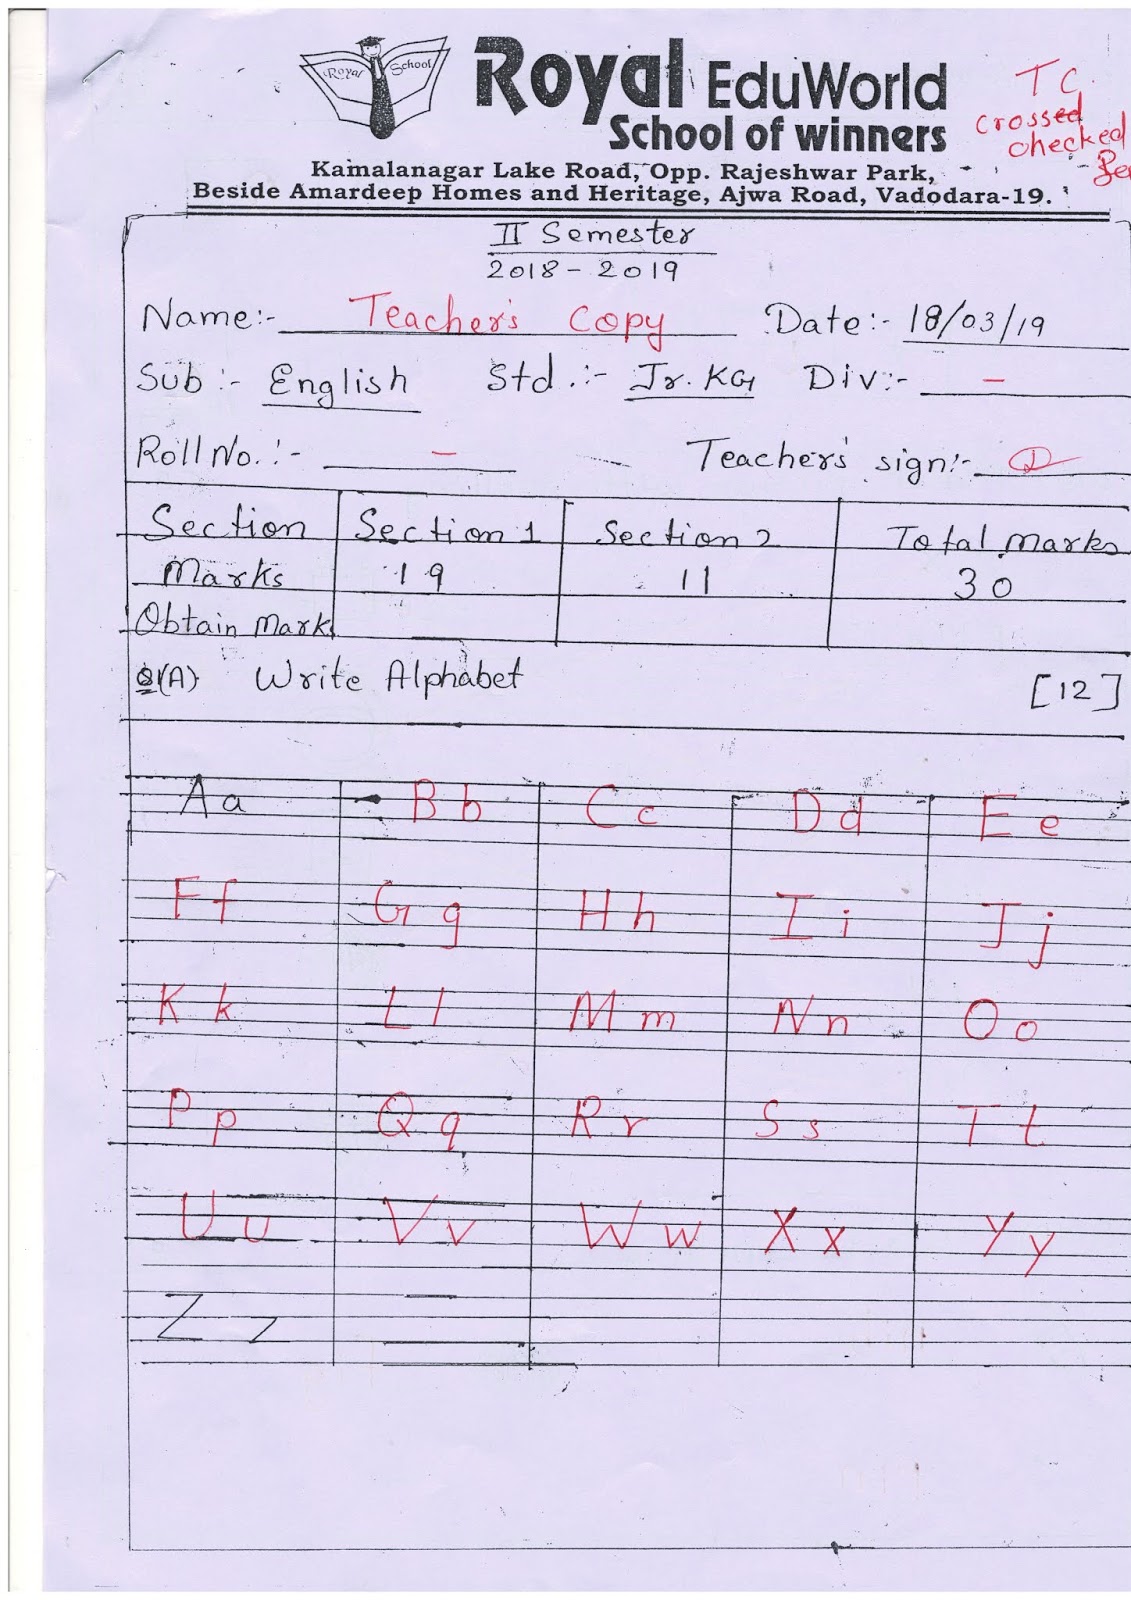 Royal School
Royal EduWorld
School of winners
TC
crossed
checked
Kamalanagar Lake Road, Opp. Rajeshwar Park,
Beside Amardeep Homes and Heritage, Ajwa Road, Vadodara-19.
II Semester
2018-2019
Name:- Teacher's Copy Date:- 18/03/19
Sub:- English Std.:- Jr.KG Div:- -
Roll No.:- - Teacher's sign:-
Section Section 1 Section 2 Total Marks
Marks 19 11 30
Obtain Mark
Q1(A) Write Alphabet [12]
Aa Bb Cc Dd Ee
Ff Gg Hh Ii Jj
Kk Ll Mm Nn Oo
Pp Qq Rr Ss Tt
Uu Vv Ww Xx Yy
Zz